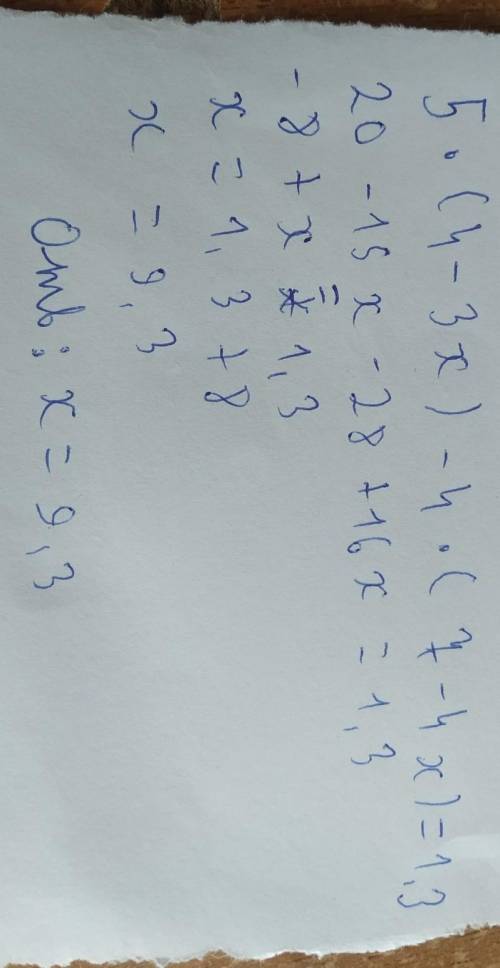 5 · (4 - 3x) - 4 · (7 - 4x) = 1,3
20 - 15x - 28 + 16x = 1,3
-8 + x = 1,3
x = 1,3 + 8
x = 9,3
Отв: x = 9,3